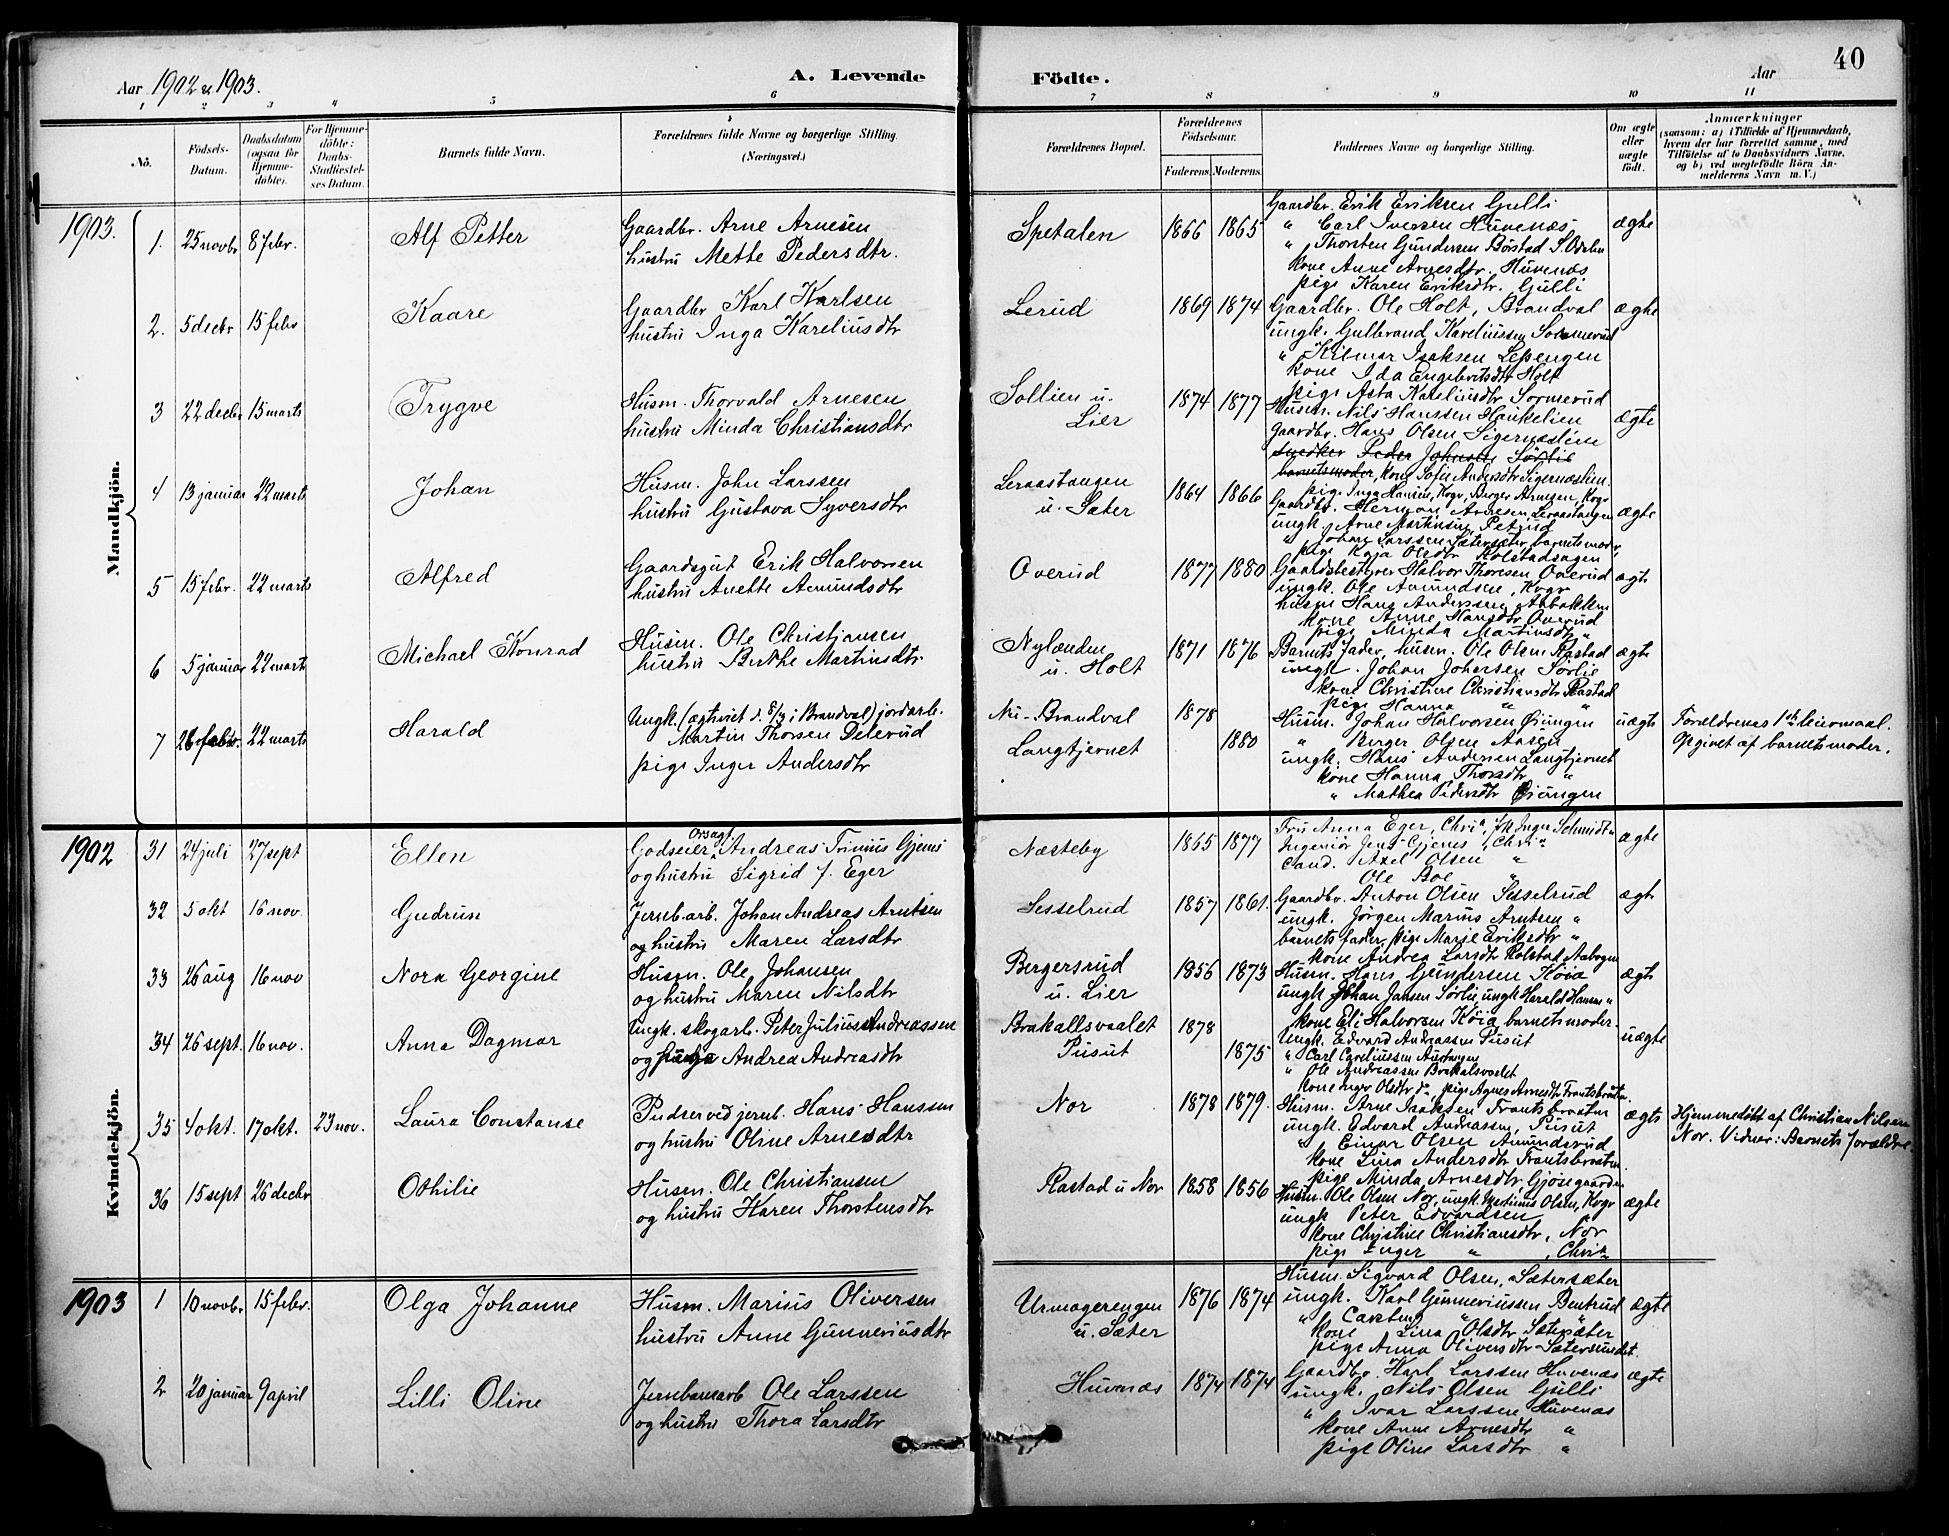 Aar 1902 & 1903.
A. Levende
Födte.
Aar
40
1 2 3 4 5 6 7 8 9 10 11
No.
Födsels-Datum.
Daabsdatum (ogsaa for Hjemmedöbte).
For Hjemmedöbte: Daabs-Stadfæstelses Datum.
Barnets fulde Navn.
Forældrenes fulde Navne og borgerlige Stilling. (Næringsvei.)
Forældrenes Bopæl.
Forældrenes Födselsaar.
Faderens. Moderens.
Faddernes Navne og borgerlige Stilling.
Om ægte eller uægte födt.
Anmærkninger
(saasom: a) i Tilfælde af Hjemmedaab, hvem der har forrettet samme, med Tilföielse af to Daabsvidners Navne, og b) ved uægtefödte Börn Anmelderens Navn m. V.)
Mandkjön.
1903.
1. 25 novbr 8 febr. Alf Petter
Gaardbr. Arne Arnesen
hustru Mette Pedersdtr.
Spetalen 1866 1865
Gaardbr. Erik Eriksen Gulli
" Carl Iversen Huvenæs
" Thorsten Gundersen Børstad S. Odalen
kone Anne Arnesdtr. Huvenæs
pige Karen Eriksdtr. Gulli
ægte
2. 5 decbr 15 febr Kaare
Gaardbr Karl Karlsen
hustru Inga Kareliusdtr
Lerud 1869 1874
Gaardbr. Ole Holt, Brandval
ungk. Gulbrand Kareliussen Sormerud
" Hilmar Isaksen Lepengen
kone Ida Engebretsdtr Holt
pige Asta Kareliusdtr Sormerud
ægte
3 22 decbr 15 marts Trygve
Husm. Thorvald Arnesen
hustru Minda Christiansdtr
Sollien u. Lier 1874 1877
Husm. Nils Hanssen Haukelien
Gaardbr. Hans Olsen Sigernæslien
snedker Peder Johnsen Sørlie
barnets moder, kone Sofie Andersdtr Sigernæslien.
pige Inga Hansen, Kogv, Berger Arnesen, Kogv
ægte
4 13 januar 22 marts Johan
Husm. John Larssen
hustru Gustava Syversdtr
Leraastangen u. Sæter 1864 1866
Gaardbr. Herman Arnesen Leraastangen
ungk. Arne Martinsen Petrud
" Johan Larssen Sætersæter, barnets moder,
pige Kaja Olsdtr Kolstadsagen
ægte
5 15 febr. 22 marts Alfred
Gaardsgut Erik Halvorsen
hustru Anette Amundsdtr
Overud 1877 1880
Gaardsbestyrer Halvor Thoresen Overud
ungk. Ole Amundsen, Kogv
husm Hans Anderssen Abbakken
kone Anne Hansdtr Overud
pige Minda Martinsdtr "
ægte
6 5 januar 22 marts Michael Konrad
Husm. Ole Christjansen
hustru Berthe Martinsdtr
Nylænden u. Holt 1871 1876
Barnets fader, husm. Ole Olsen Rastad
ungk. Johan Johansen Sørlie
kone Christine Christiansdtr Rastad
pige Hanna " "
ægte
7 26 febr. 22 marts Harald
Ungk. (ægteviet d. 8/3 i Brandval) jordarb.
Martin Thorsen Delerud
pige Inger Andersdtr
Nu-Brandval 1878
Langtjernet 1880
Husm. Johan Halvorsen Øiungen
" Berger Olsen Aasen
ungk. Hans Andersen Langtjernet
kone Hanna Thorsdtr "
" Mathea Pedersdtr Øiungen
uægte
Forældrenes 1ste leiermaal.
Opgivet af barnets moder.
Kvindekjön.
1902
31 24 juli 27 sept Ellen
Godseier, Orsagf Andreas Trinius Gjems
og hustru Sigrid f. Eger
Næsteby 1865 1877
Fru Anna Eger, Chria, frk Inger Schmidt "
Ingeniør Jens Gjems, Chria
Cand. Axel Olsen "
Ole Boe "
ægte
32 5 okt 16 nov. Gudrun
Jernb.arb. Johan Andreas Arntsen
og hustru Maren Larsdtr
Sesselrud 1857 1861.
Gaardbr. Anton Olsen Sesselrud
ungk. Jörgen Marius Arntsen "
barnets fader, pige Marie Eriksdtr "
kone Andrea Larsdtr Kolstad Aabogen
ægte
33 26 aug 16 nov Nora Georgine
Husm. Ole Johansen
og hustru Maren Nilsdtr
Bergersrud u. Lier 1856 1873
Husm. Hans Gundersen Køia
ungk Johan Jansen Sørlie, ungk Harald Hansen "
kone Eli Halvorsen Køia, barnets moder.
ægte
34 26 sept. 16 nov. Anna Dagmar
Ungk. skogarb. Peter Julius Andreassen
og pige Andrea Andreasdtr
Brakallsvaalet 1878
Pusut 1875
Ungk. Edvard Andreassen Pusut
" Carl Careliussen Austangen
" Ole Andreassen Brakalsvalet
kone Inger Olsdtr do, pige Agnes Arnesdtr Frantsbraaten
uægte
35 4 okt. 17 okt. 23 nov. Laura Constanse
Pudser ved jernb. Hans Hanssen
og hustru Oline Arnesdtr
Nor 1878 1879.
Husm. Arne Isaksen Frantsbraaten
ungk. Edvard Andreassen, Pusut
" Einar Olsen Amundsrud
kone Lina Andersdtr Frantsbraaten.
pige Minda Arnesdtr Gjøsegaarden
ægte
Hjemmedöbt af Christian Nilsen
Nor. Vidner: Barnets forældre
36 15 sept 26 decbr Othilie
Husm. Ole Christiansen
og hustru Karen Thorstensdtr
Rastad u Nor 1858 1856
Husm. Ole Olsen Nor, ungk Martinus Olsen, Kogv
ungk Peter Edvardsen "
kone Christine Christiansdtr, Nor
pige Inger " , Chria
ægte
1903
1 10 novbr 15 febr. Olga Johanne
Husm. Marius Oliversen
hustru Anne Gunneriusdtr
Urmagerengen u. Sæter 1876 1874
Husm. Sigvard Olsen, Sætersæter
ungk. Karl Gunneriussen Bentrud
" Carsten " "
kone Lina Olsdtr Sætersæter
pige Anna Oliversdtr Sætersundet
ægte
2 20 januar 9 april Lilli Oline
Jernbanearb Ole Larssen
og hustru Thora Larsdtr
Huvenæs 1874 1874
Gaardbr. Karl Larssen Huvenæs
ungk. Nils Olsen Gulli
" Ivar Larssen Huvenæs
kone Anne Arnesdtr "
pige Oline Larsdtr "
ægte